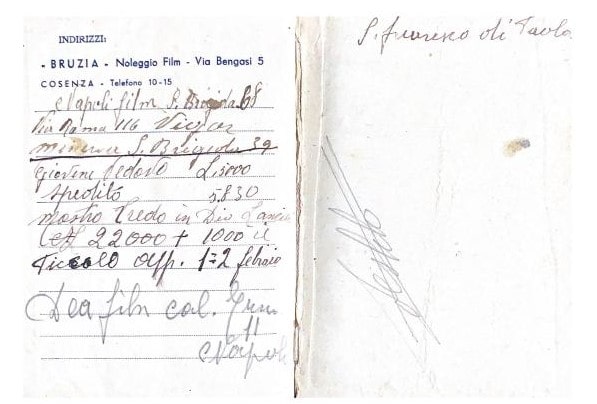 INDIRIZZI:
- BRUZIA - Noleggio Film - Via Bengasi 5
COSENZA - Telefono 10-15
Napoli film S. Brigida 68
Via Roma 116 Victor
Minerva S. Brigida 39
Giovine Vedova L. 5000
spedito 5830
mostro Credo in Dio
22000 + 1000 il
Piccolo app. 1=2 febraio
Dea film cal.
11
Napoli
S. Francesco di Paola